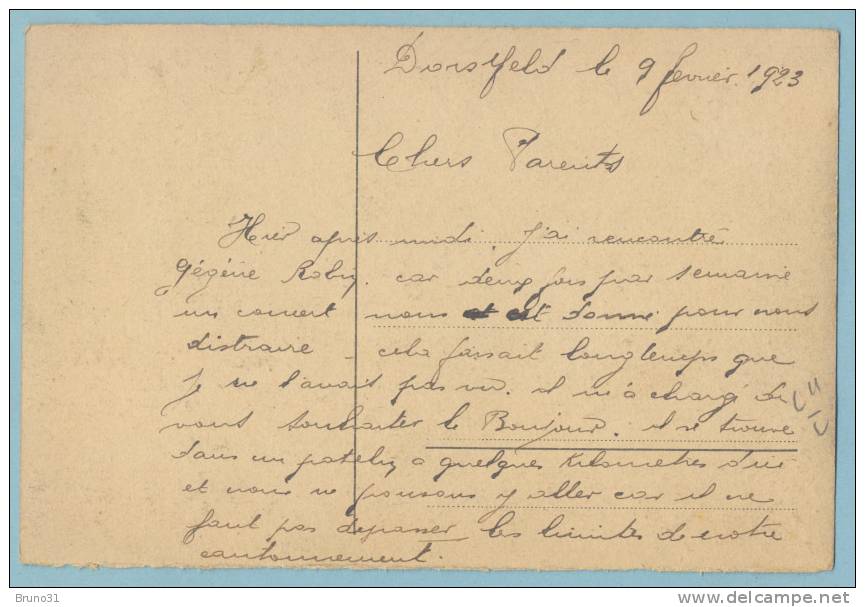 Dorstfeld le 9 février 1923
Chers Parents
Hier après midi, J'ai rencontré
gégène Roby, car deux fois par semaine
un concert nous est donné pour nous
distraire - cela faisait longtemps que
je ne l'avait pas vu. il m'a chargé de
vous souhaiter le Bonjour. il se trouve
dans un patelin a quelques Kilometres d'ici
et nous ne pouvons y aller car il ne
faut pas depasser les limites de notre
cantonnement.
Bruno31
delcampe.net